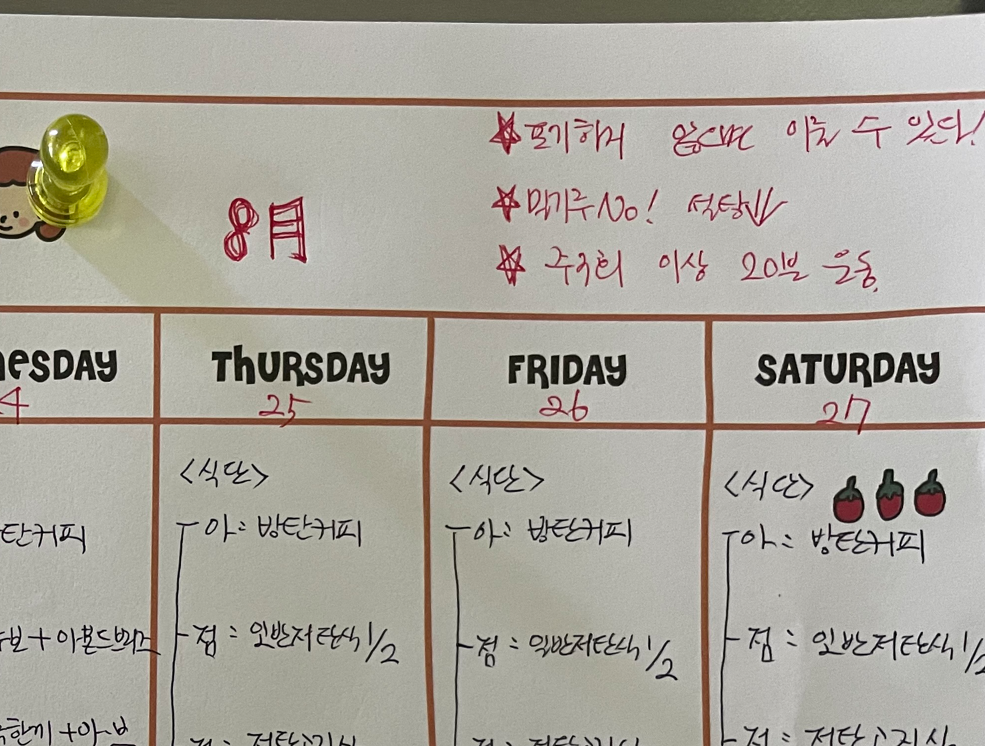 ★포기하지 않으면 이룰 수 있다!
8月
★밀가루No! 석탕↓↓
★ 주3회 이상 20분 운동.
nesday THURSDAY FRIDAY SATURDAY
4 25 26 27
<식단> <식단> <식단>
탄커피 아: 방탄커피 아: 방탄커피 아: 방탄커피
+아몬드브리즈 점: 일반저탄식 1/2 점: 일반저탄식 1/2 점: 일반저탄식 1/2
한끼+아 저탄고지식 저탄고지식 저탄고지식